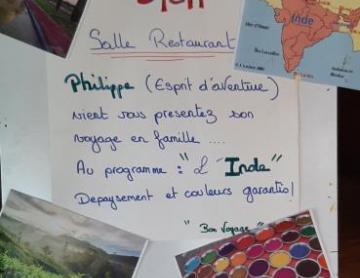 Salle Restaurant
Philippe (Esprit d'aventure)
vient vous presentez son
voyage en famille ....
Au programme : "L'Inde"
Depaysement et couleurs garantis!
"Bon Voyage"
Inde